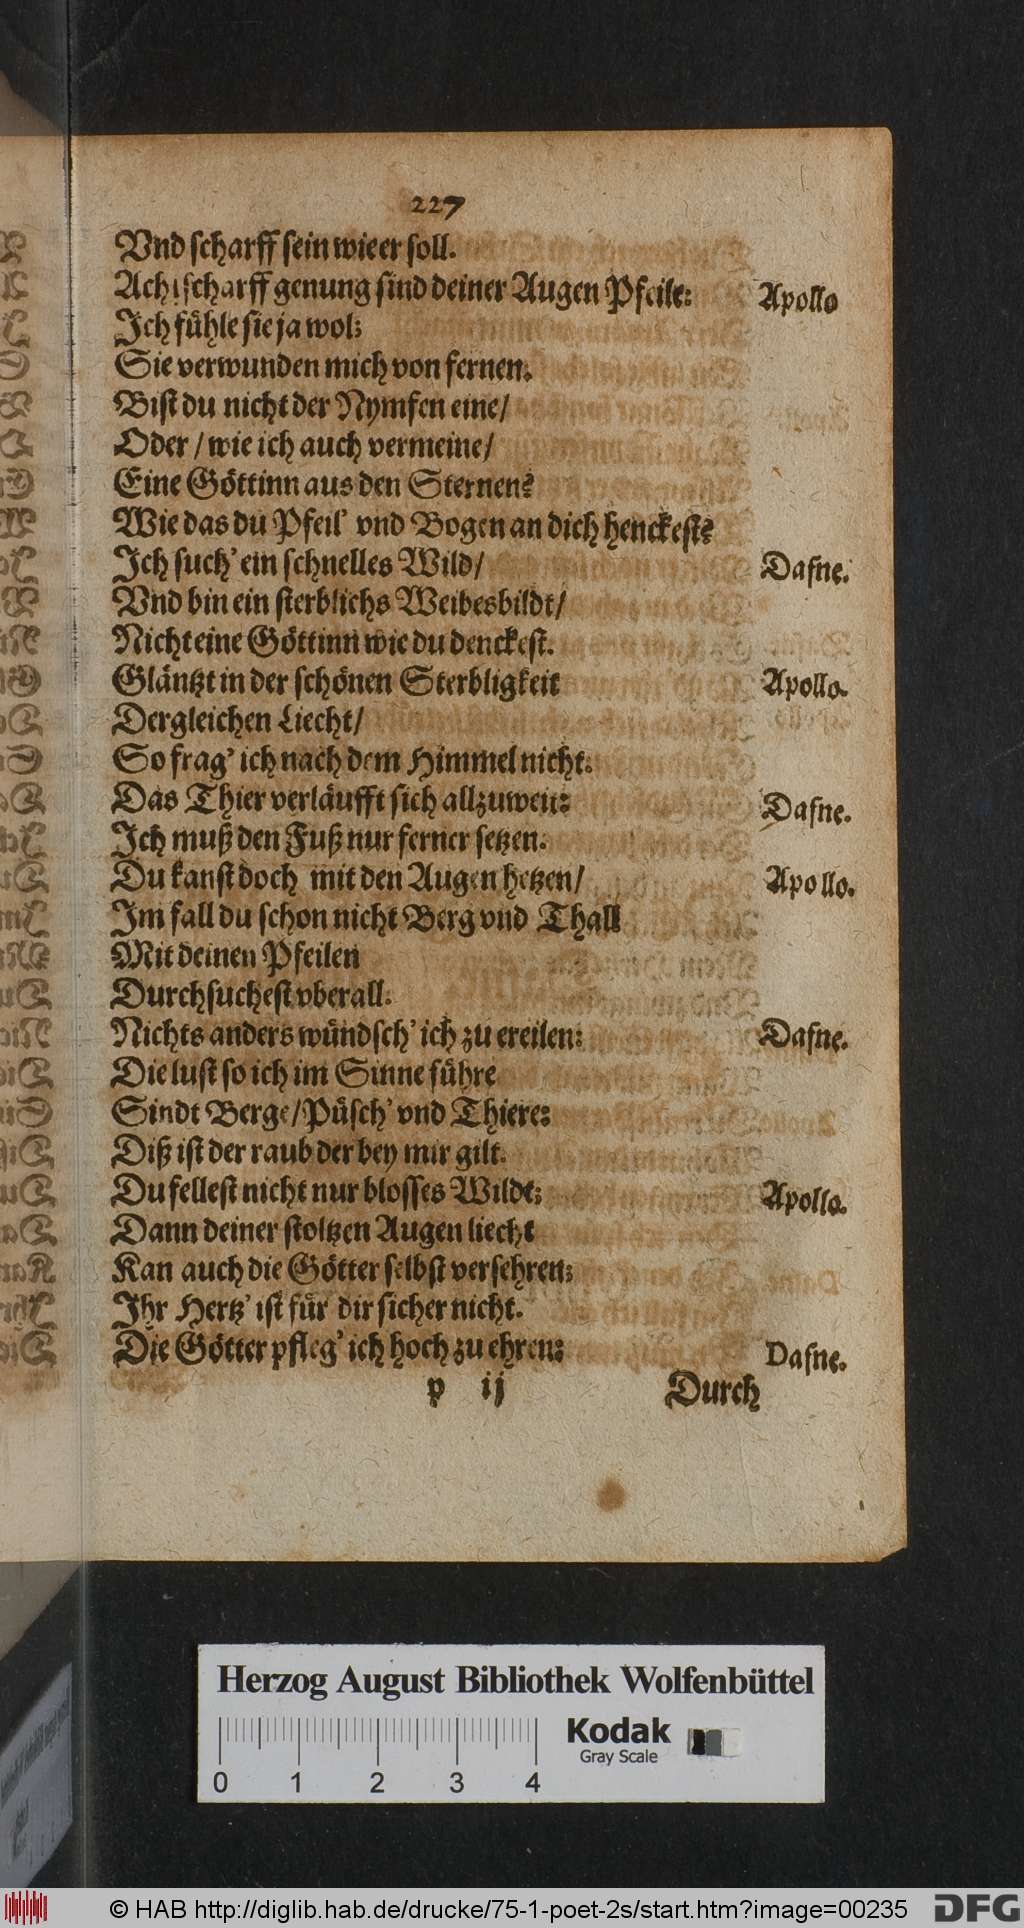 227
Vnd scharff sein wie er soll.
Ach! scharff genung sind deiner Augen Pfeile: Apollo
Ich fühle sie ja wol;
Sie verwunden mich von fernen.
Bist du nicht der Nymfen eine/
Oder / wie ich auch vermeine/
Eine Göttinn aus den Sternen?
Wie das du Pfeil' vnd Bogen an dich henckest?
Ich such' ein schnelles Wild/ Dafne.
Vnd bin ein sterblichs Weibesbildt/
Nicht eine Göttinn wie du denckest.
Gläntzt in der schönen Sterbligkeit Apollo.
Dergleichen Liecht/
So frag' ich nach dem Himmel nicht.
Das Thier verläufft sich allzuweit: Dafne.
Ich muß den Fuß nur ferner setzen.
Du kanst doch mit den Augen hetzen/ Apollo.
Im fall du schon nicht Berg vnd Thall
Mit deinen Pfeilen
Durchsuchest vberall.
Nichts anders wündsch' ich zu ereilen: Dafne.
Die lust so ich im Sinne führe
Sindt Berge/Püsch' vnd Thiere:
Diß ist der raub der bey mir gilt.
Du fellest nicht nur blosses Wildt; Apollo.
Dann deiner stoltzen Augen liecht
Kan auch die Götter selbst versehren;
Ihr Hertz' ist für dir sicher nicht.
Die Götter pfleg' ich hoch zu ehren: Dafne.
p ij Durch
Herzog August Bibliothek Wolfenbüttel
Kodak
Gray Scale
0 1 2 3 4
© HAB http://diglib.hab.de/drucke/75-1-poet-2s/start.htm?image=00235
DFG